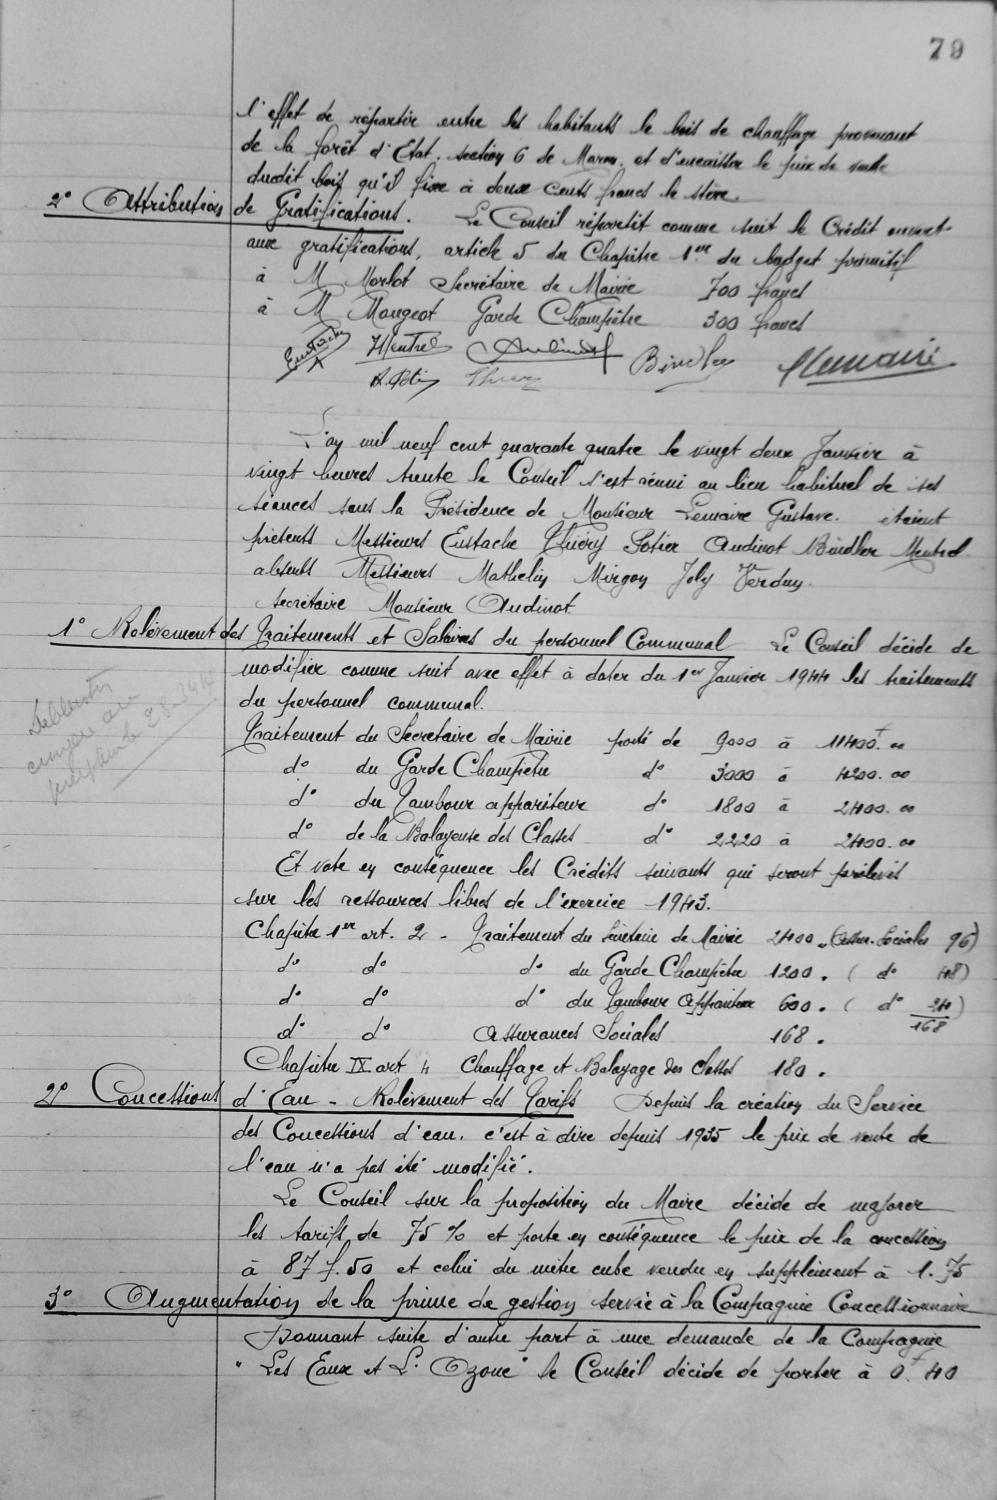 79
l'effet de répartir entre les habitants le bois de chauffage provenant
de la forêt d'Etat, section 6 de et d'encaisser le prix de vente
dudit bois qu'il fixe à deux cents francs le stère.
2° Attribution de Gratifications. Le Conseil répartit comme suit le Crédit ouvert
aux gratifications, article 5 du Chapitre 1er du budget primitif
à M Morlot Secrétaire de Mairie 700 francs
à M Mougeot Garde Champêtre 300 francs
Eustache HMentrel Audinot Bindler GLemaire
A. Potier Thiery
L'an mil neuf cent quarante quatre le vingt deux Janvier à
vingt heures trente le Conseil s'est réuni au lieu habituel de ses
séances sous la Présidence de Monsieur Lemaire Gustave. étaient
présents Messieurs Eustache Thiéry Potier Audinot Bindler Mentrel
absents Messieurs Mathelin Mirgon Joly Verdun.
secrétaire Monsieur Audinot
1° Relèvement des Traitements et Salaires du personnel Communal Le Conseil décide de
modifier comme suit avec effet à dater du 1er Janvier 1944 les traitements
du personnel communal.
Traitement du Secrétaire de Mairie porté de 9000 à 11400f.00
d° du Garde Champêtre d° 3000 à 4200.00
d° du Tambour appariteur d° 1800 à 2400.00
d° de la Balayeuse des Classes d° 2220 à 2400.00
Et vote en conséquence les Crédits suivants qui seront prélevés
sur les ressources libres de l'exercice 1943.
Chapitre 1er art. 2 - Traitement du Secrétaire de Mairie 2400 . (Assur. Sociales 96)
d° d° d° du Garde Champêtre 1200 . ( d° 48)
d° d° d° du Tambour Appariteur 600 . ( d° 24)
168
d° d° Assurances Sociales 168 .
Chapitre IX art 4 Chauffage et Balayage des Classes 180 .
2° Concessions d'Eau - Relèvement des Tarifs Depuis la création du Service
des Concessions d'eau, c'est à dire depuis 1935 le prix de vente de
l'eau n'a pas été modifié.
Le Conseil sur la proposition du Maire décide de majorer
les tarifs de 75 % et porte en conséquence le prix de la concession
à 87 f. 50 et celui du mètre cube vendu en supplément à 1.75
3° Augmentation de la prime de gestion servie à la Compagnie Concessionnaire
Donnant suite d'autre part à une demande de la Compagnie
"Les Eaux et L'Ozone" le Conseil décide de porter à 0f.40